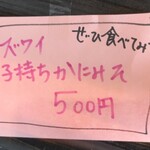 ぜひ食べてみて
ズワイ
子持ちかにみそ
500円